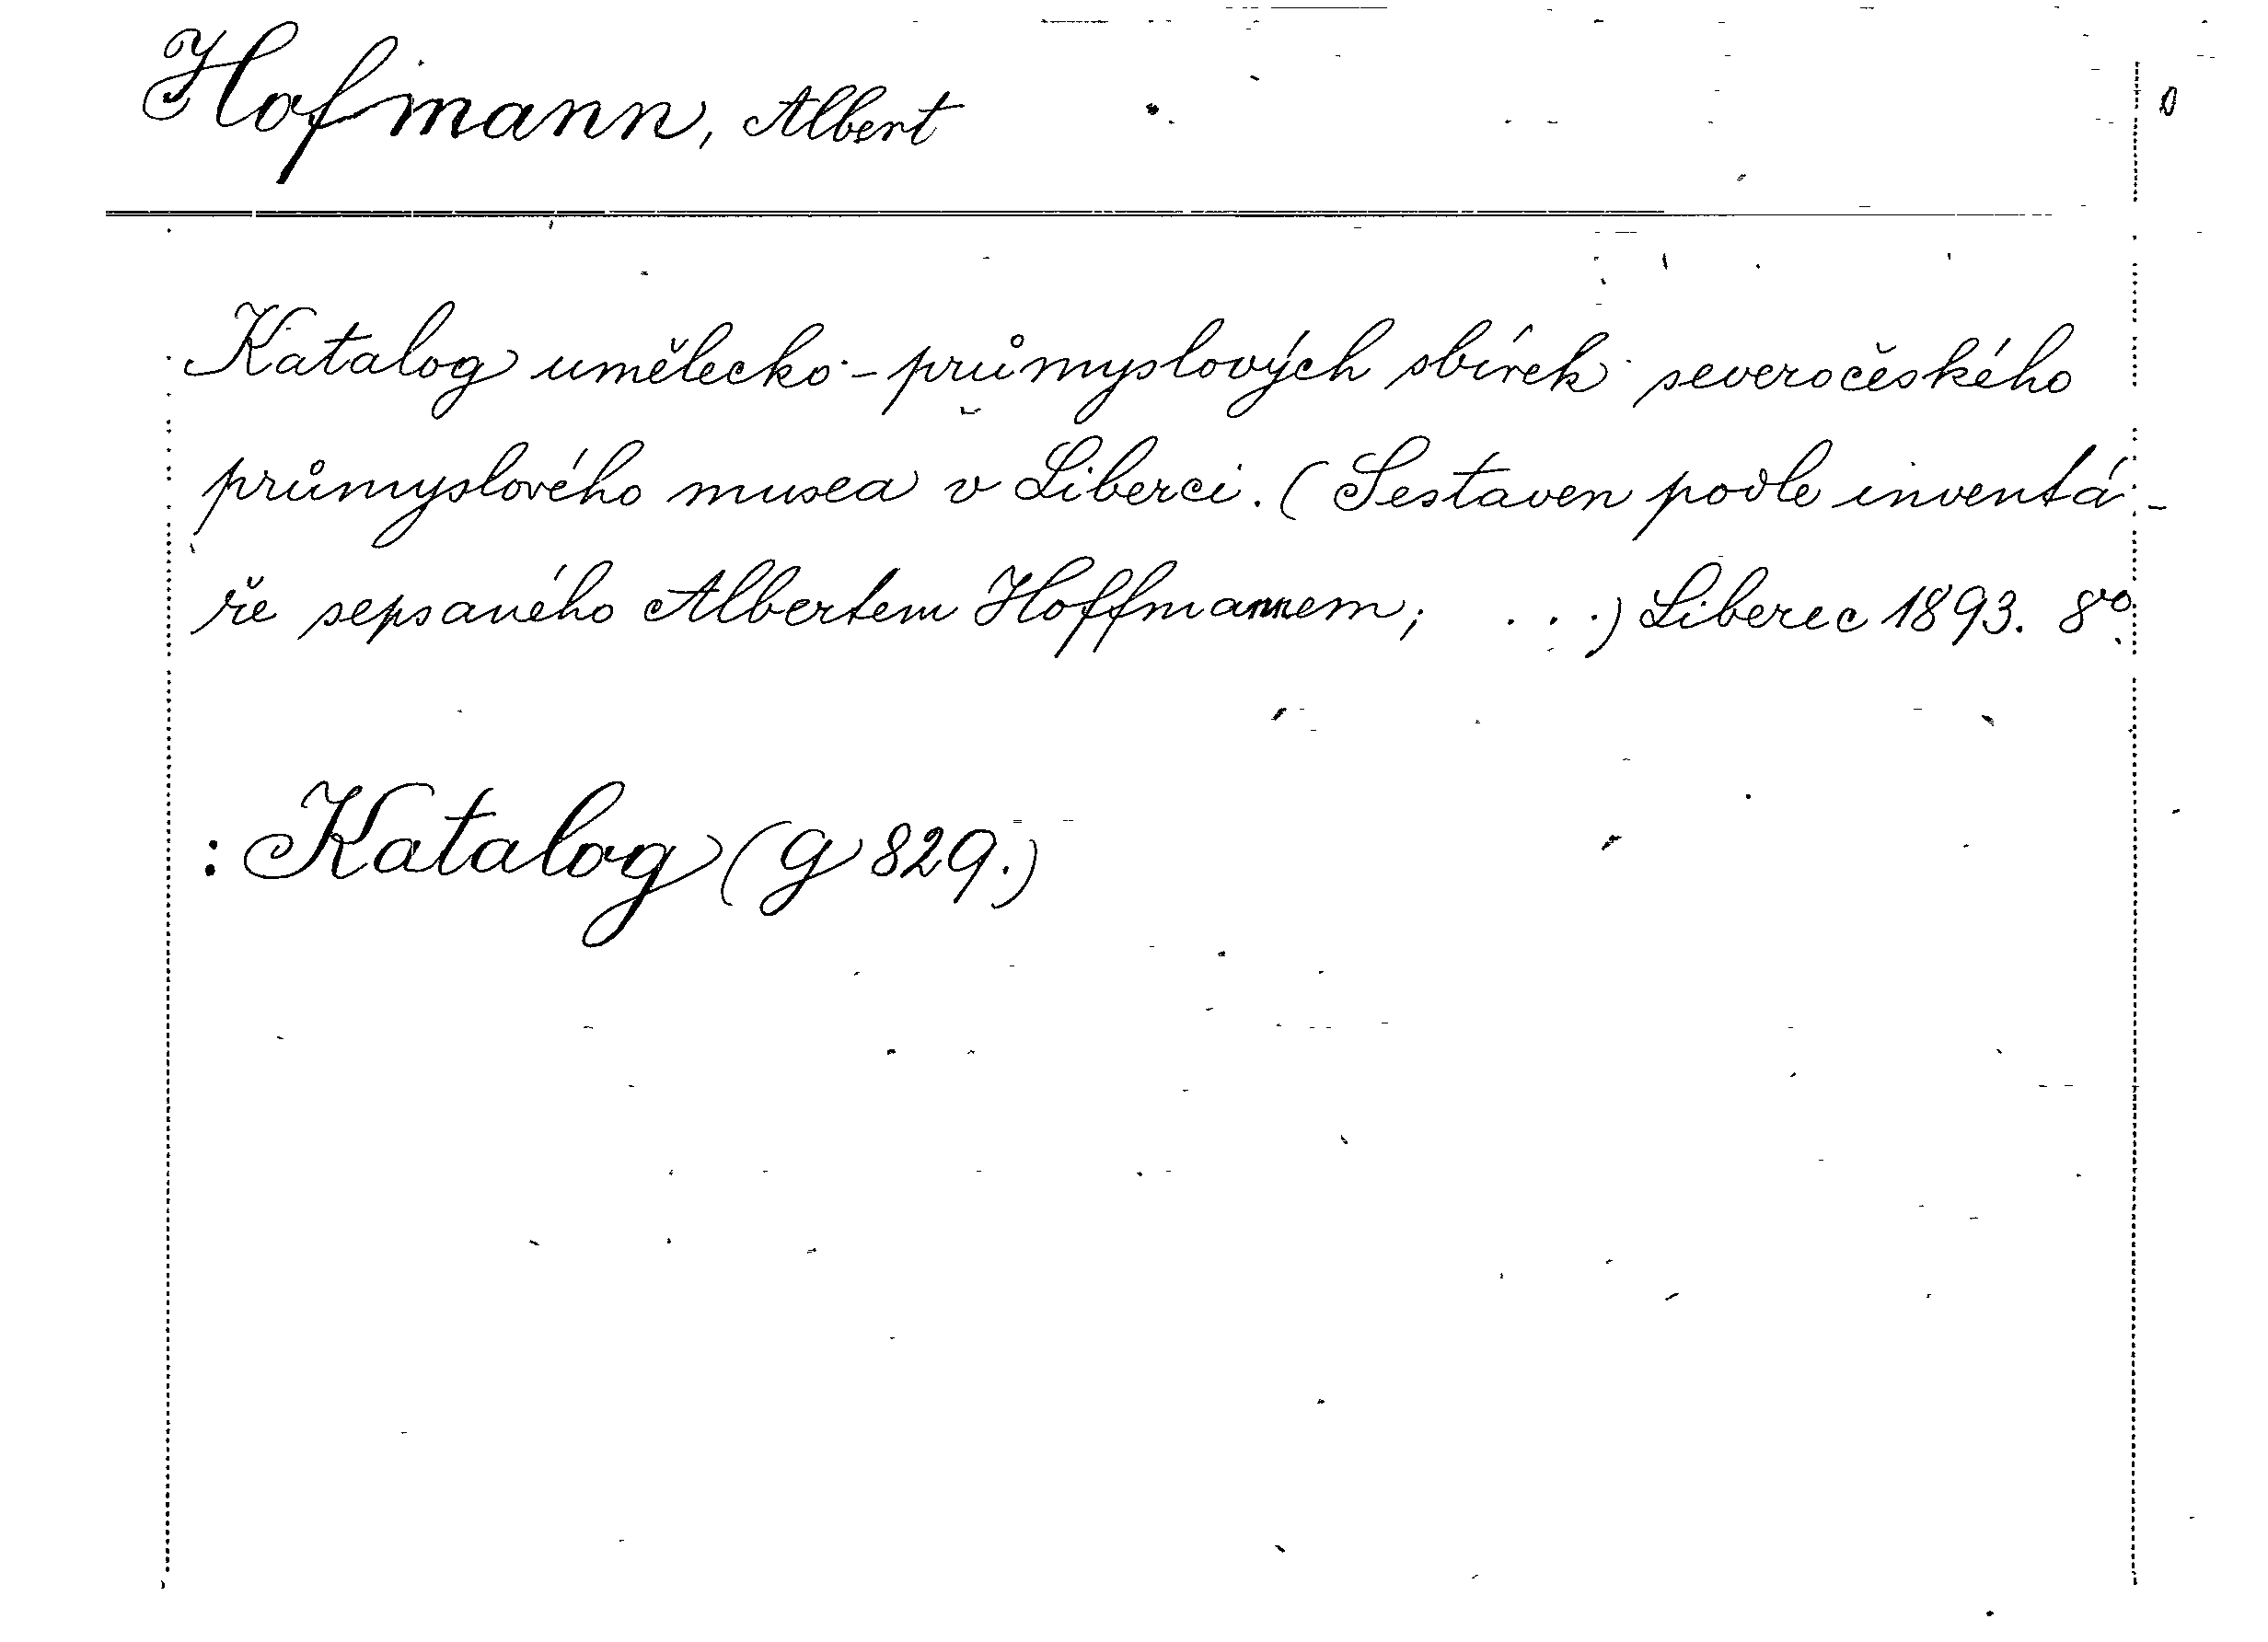 Hofmann, Albert
Katalog umělecko-průmyslových sbírek severočeského
průmyslového musea v Liberci. (Sestaven podle inventá-
ře sepsaného Albertem Hoffmannem; ...) Liberec 1893. 8vo.
: Katalog (g 829.)